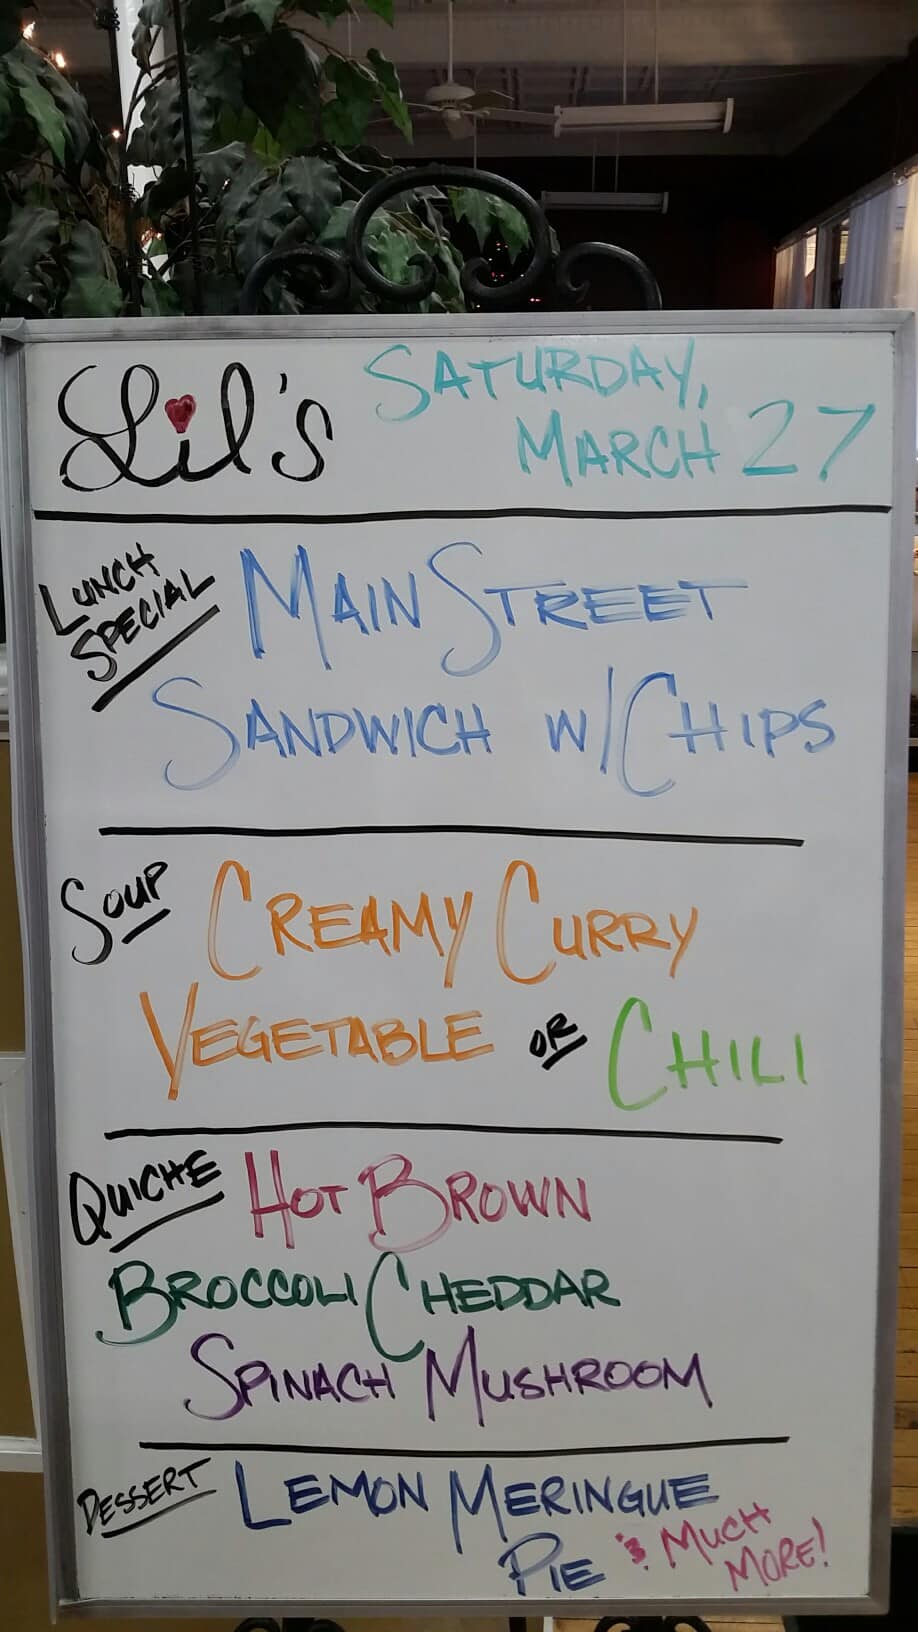 Lil's
SATURDAY,
MARCH 27
LUNCH
SPECIAL
MAIN STREET
SANDWICH W/CHIPS
SOUP
CREAMY CURRY
VEGETABLE OR CHILI
QUICHE
HOT BROWN
BROCCOLI CHEDDAR
SPINACH MUSHROOM
DESSERT
LEMON MERINGUE
PIE & MUCH
MORE!